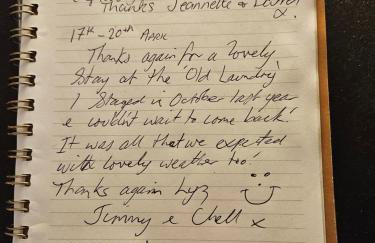 Thanks Jeannette &
x.
17th - 20th APRIL
Thanks again for a lovely
stay at the 'Old Laundry'
I stayed in October last year
e couldn't wait to come back!
It was all that we expected
with lovely weather too!
Thanks again Lyz
Jimmy e Chell x